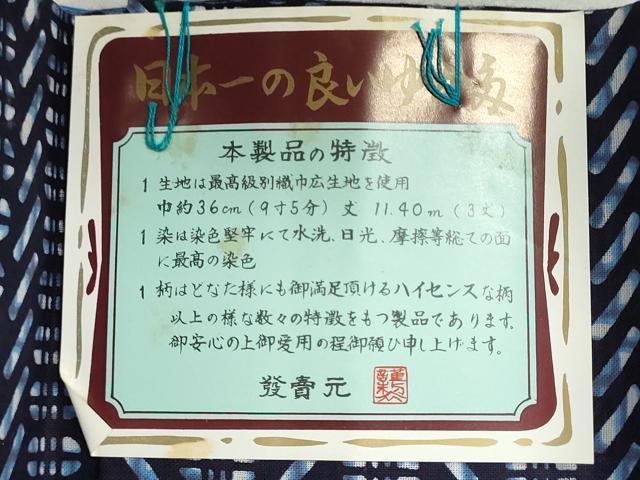 日本一の良いゆかた
本製品の特徴
1 生地は最高級別織巾広生地を使用
巾約36cm(9寸5分) 丈 11.40m(3丈)
1 染は染色堅牢にて水洗、日光、摩擦等総ての面
に最高の染色
1 柄はどなた様にも御満足頂けるハイセンスな柄
以上の様な数々の特徴をもつ製品であります。
御安心の上御愛用の程御願ひ申し上げます。
發賣元